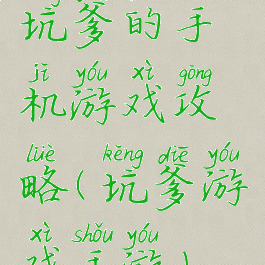 坑爹的手
jī yóu xì gōng
机游戏攻
lüè kēng diē yóu
略(坑爹游
xì shǒu yóu
戏手游)